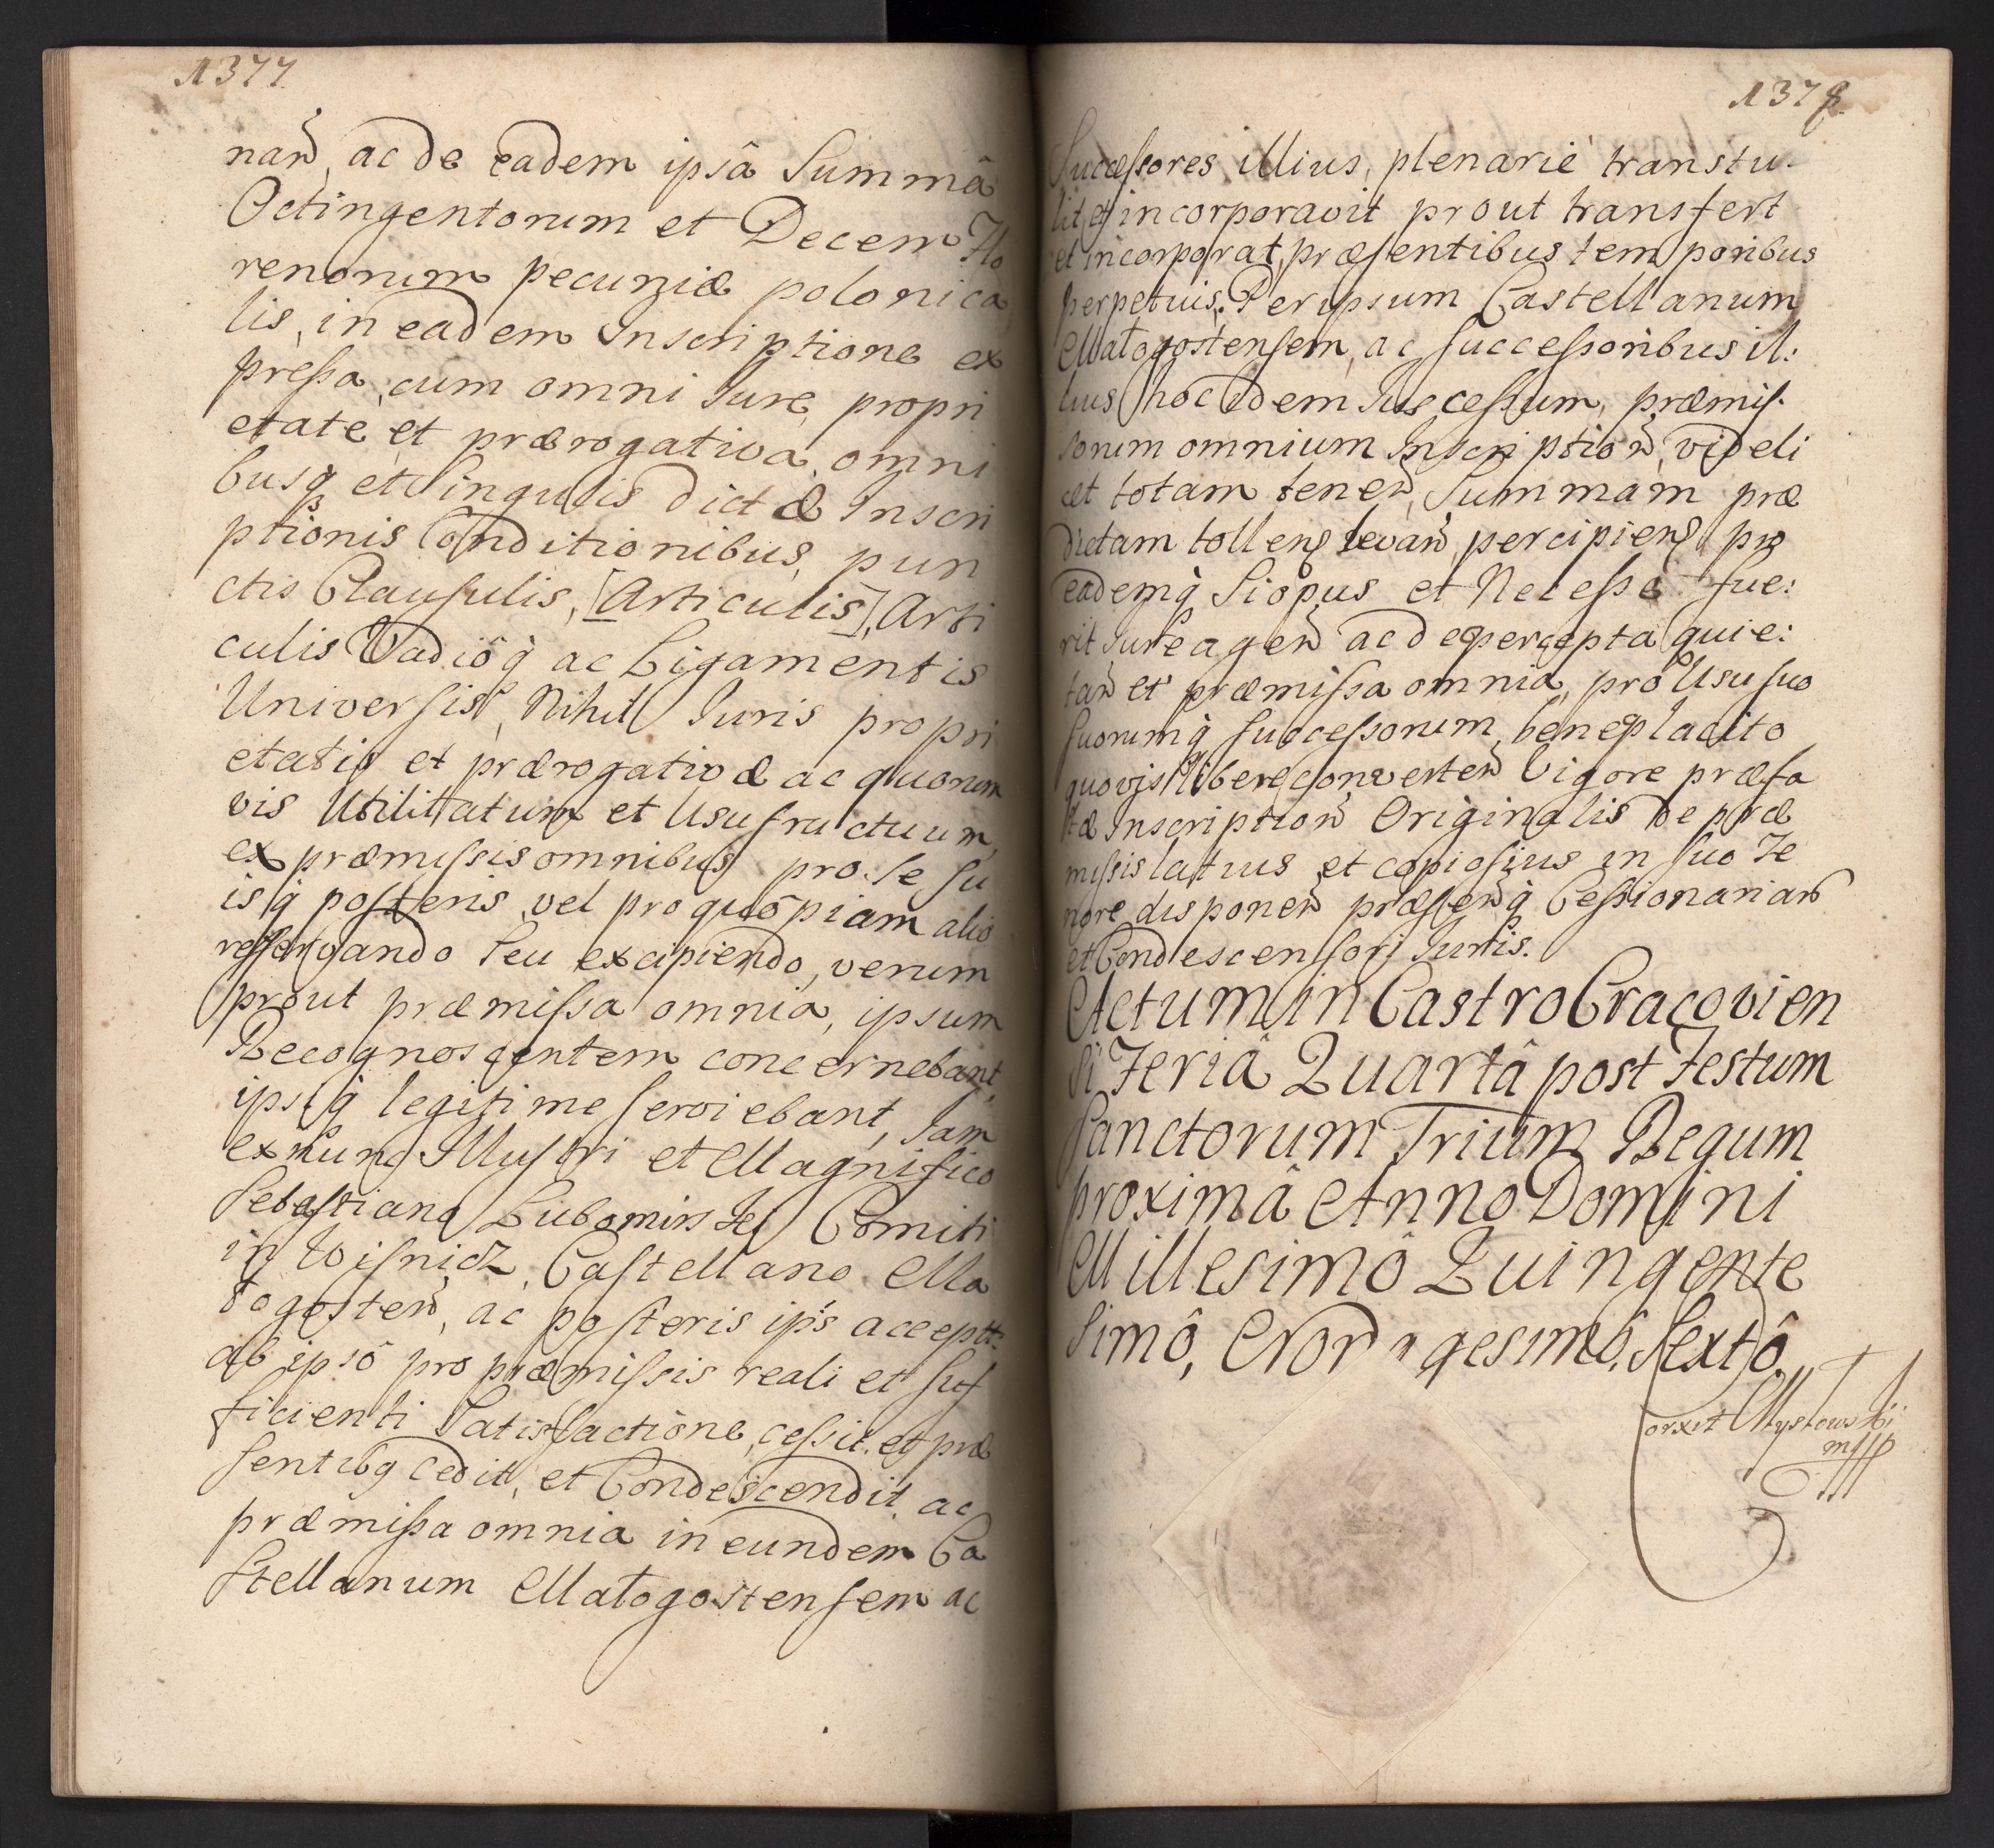 1377.
nan̄, ac de eadem ipsâ Summâ
Octingentorum et Decem Flo
renorum pecuniæ polonica
lis, in eadem Inscriptione ex
pressa, cum omni Jure, propri
etate, et prærogativa, omni
busq̷ et Singulis dictæ Inscri
ptionis Conditionibus, pun
ctis Clausulis, [Articulis], Arti
culis Vadiôq̀ ac Ligamentis
Universis, Nihil Juris propri
etatis et prærogativæ ac quorum
vis Utilitatum et Usufructuum,
ex præmissis omnibus pro Se su
isq̀ posteris vel pro quôpiam alio
reservando Seu excipiendo, verum
prout præmissa omnia, ipsum
Recognoscentem concernebant,
ipsiq̀ legitime serviebant, Jam
ex nunc Illustri et Magnifico
Sebastiano Lubomirski Comiti
in Wisnicz, Castellano Ma
łogosten̄, ac posteris ips̄ accepta
ab ipsô pro præmissis reali et suf
ficienti Satisfactione, cessit, et præ
sentibq̷ cedit, et Condescendit ac
præmissa omnia in eundem Ca
stellanum Małogostensem ac
1378.
Successores illius, plenarie transtu-
lit et incorporavit prout transfert
et incorporat præsentibus temporibus
perpetuis. Per ipsum Castellanum
Małogostensem, ac successoribus il:
lius hoc idem Jus cessum, præmis-
sorum omnium Inscription̄, videli
cet totam tenen̄, Summam præ
dictam tollen̄ levan̄, percipien̄ pro
eademq̀ Si opus et Necesse fue:
rit Jure agen̄ ac de percepta quie:
tan̄ et præmissa omnia, pro Usu suo
suorumq̀ successorum, beneplacito
quovis libere converten̄ Vigore præfa
tæ Inscription̄ Originalis de præ
missis latius et copiosius in suo Te
nore disponen̄ præsen̄q̀ Cessionarian̄
et Condescensorj Juris.
Actum in Castro Cracovien
si Feriâ Quartâ post Festum
Sanctorum Trium Regum
proximâ Anno Domini
Millesimô Quingente
simô, Nonagesimô, Sextô.